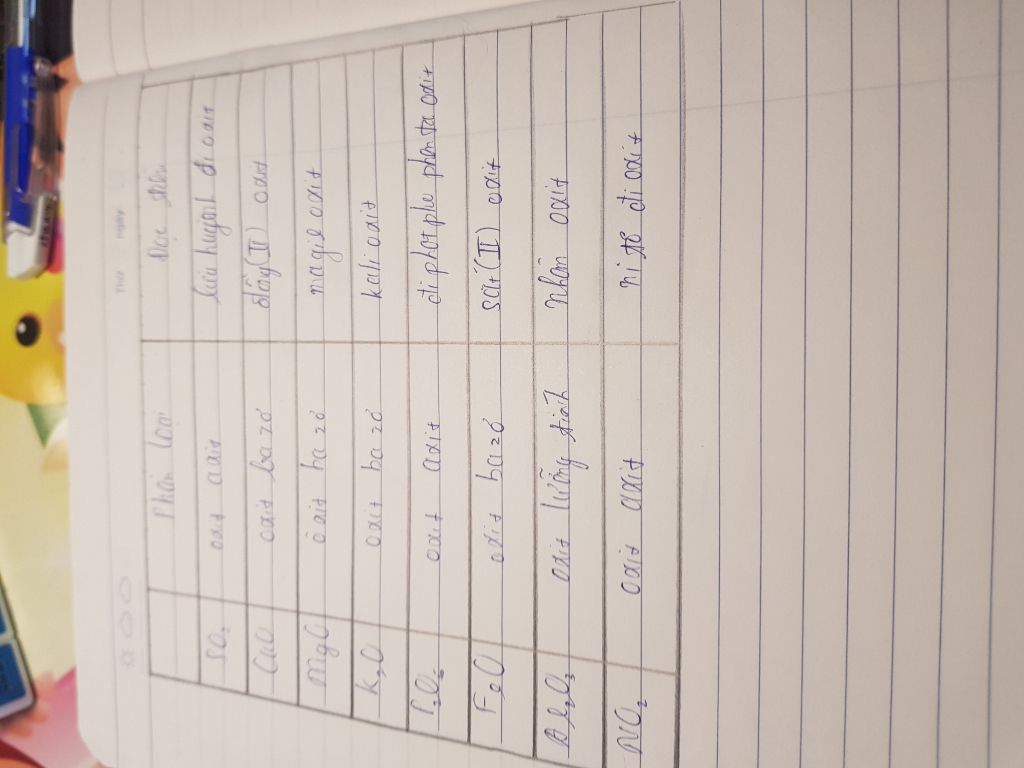 THỨ NGÀY
Phân loại Đọc tên
SO₂ oxit axit lưu huỳnh đi oxit
CuO oxit bazơ đồng(II) oxit
MgO oxit bazơ magiê oxit
K₂O oxit bazơ kali oxit
P₂O₅ oxit axit điphotpho phenta oxit
FeO oxit bazơ sắt(II) oxit
Al₂O₃ oxit lưỡng tính Nhôm oxit
NO₂ oxit axit ni tơ đi oxit